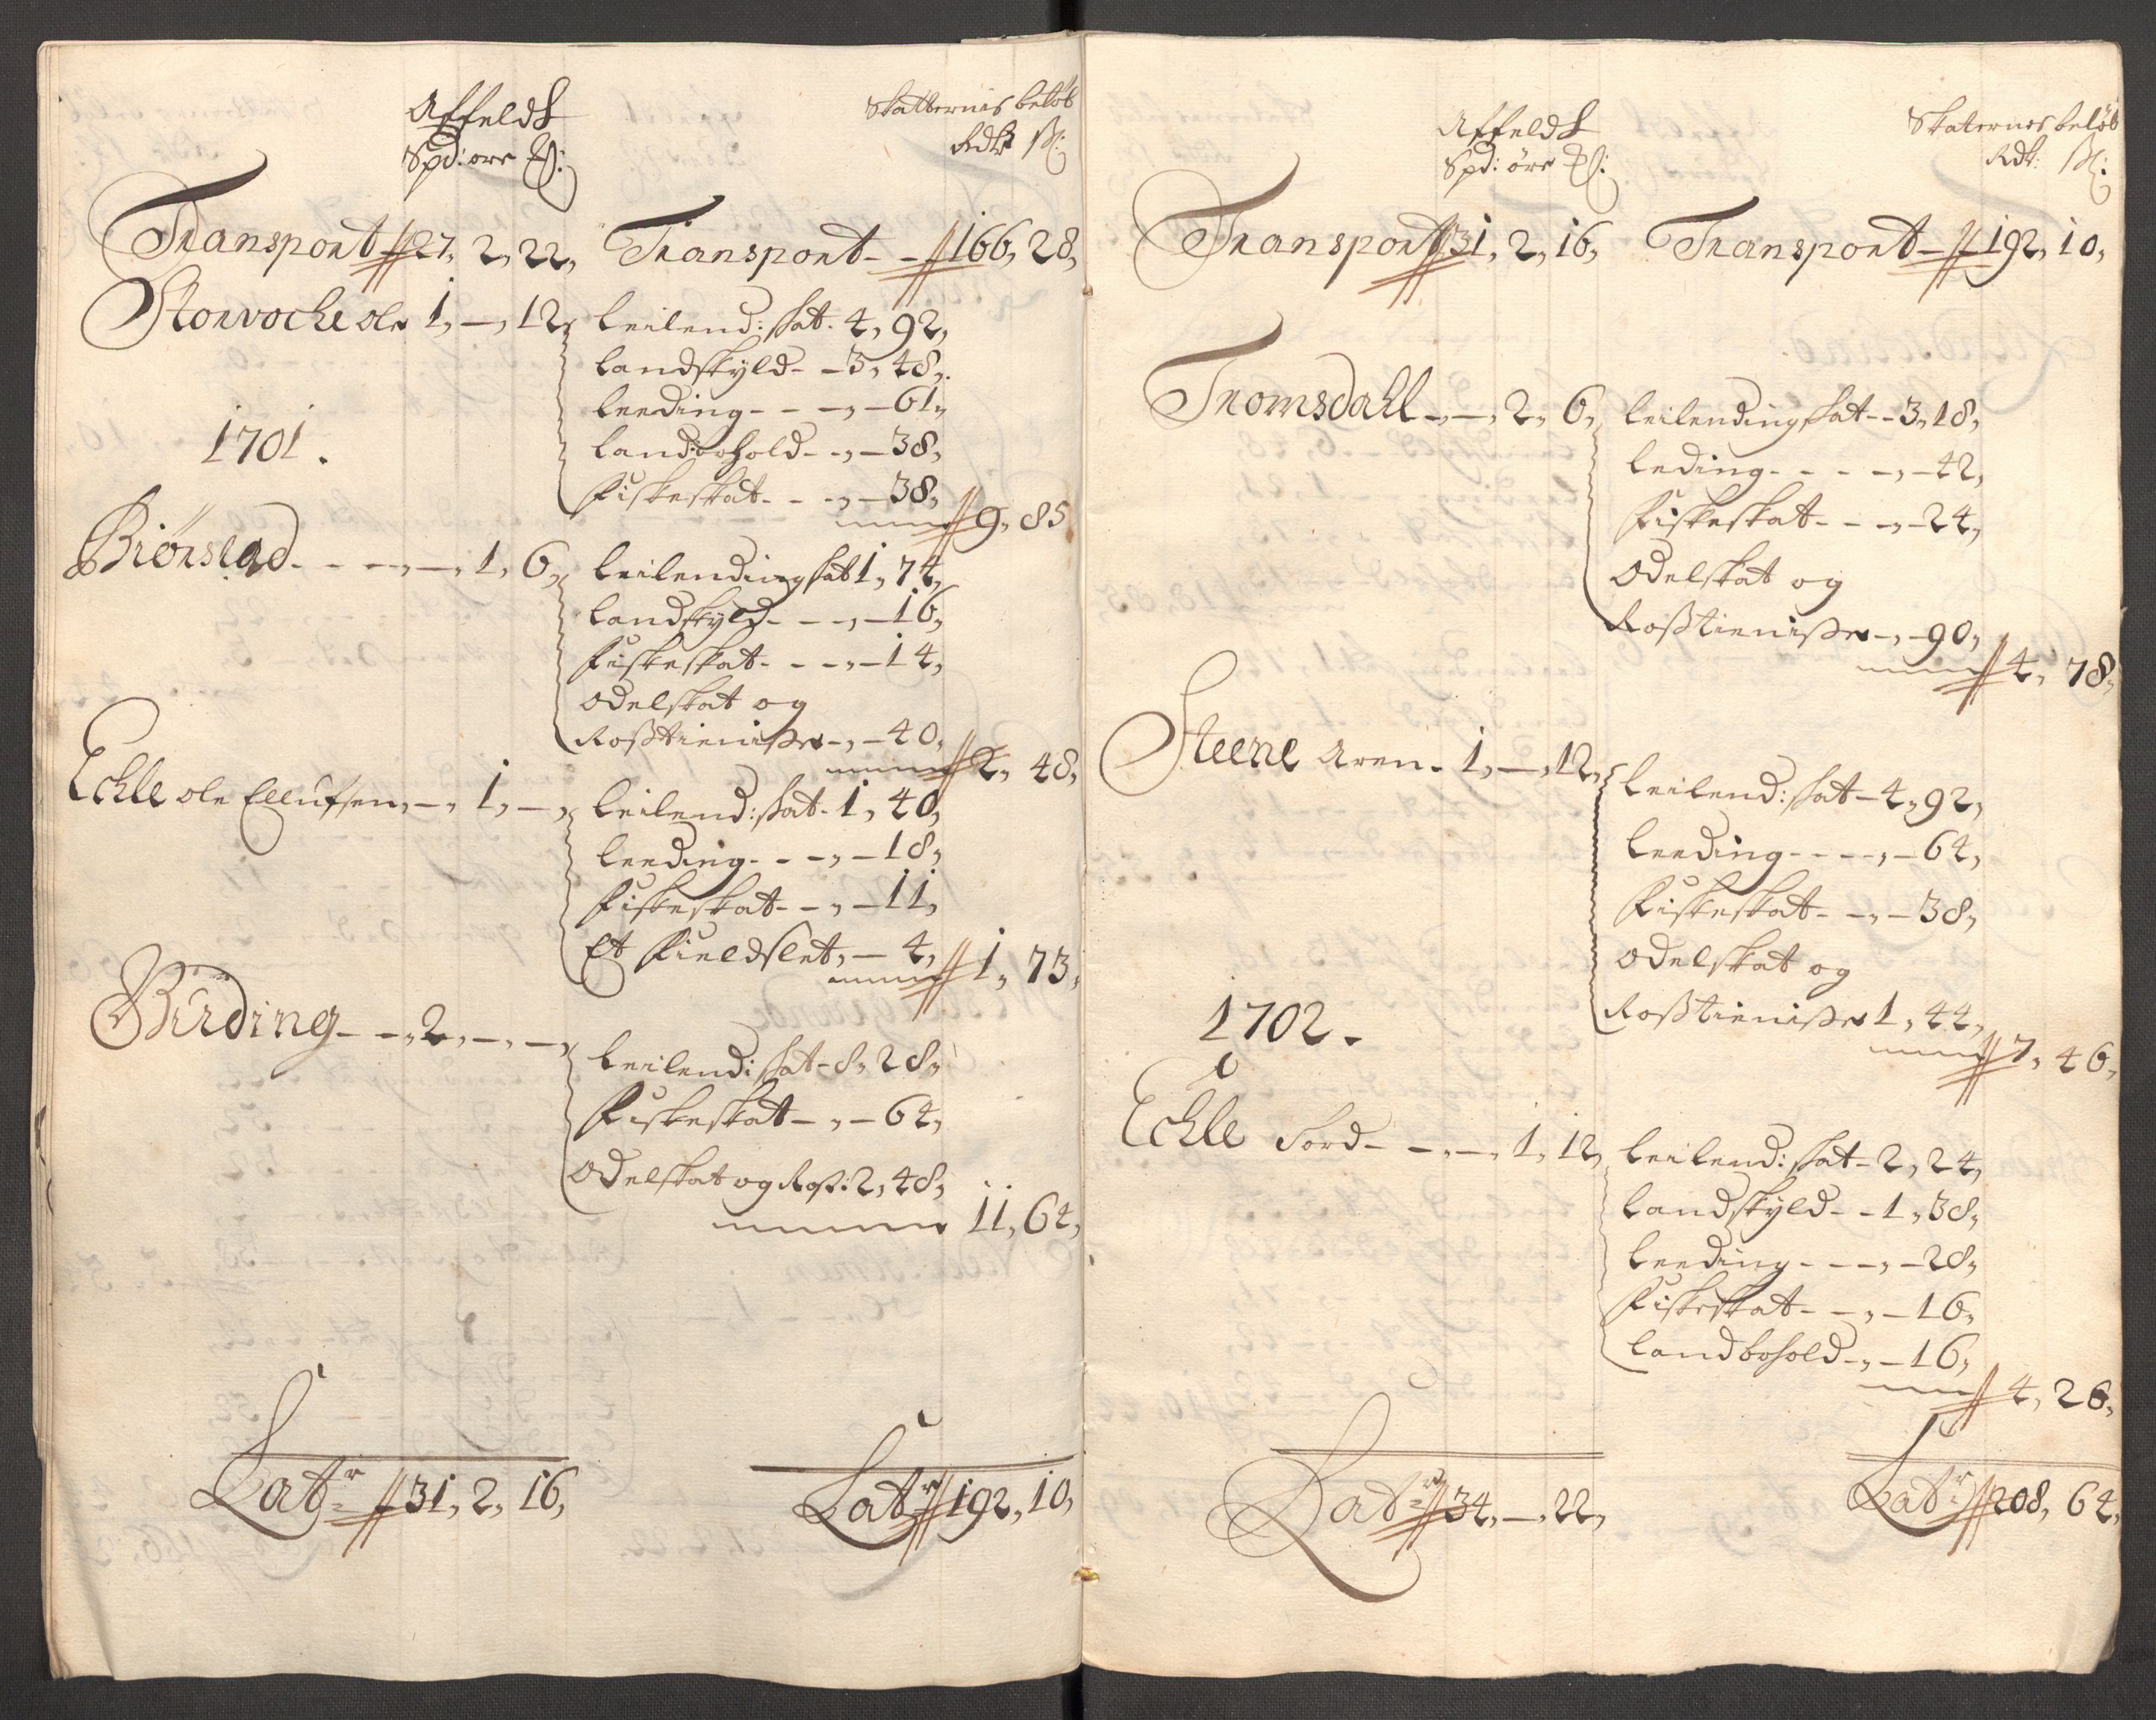 Affeldt
Spd: øre
Skatternis beløb
Rdlr ß:
Transport 27, 2, 22, Transport - - 166, 28,
Storvoche ole 1, -, 12, leilend: skat. 4, 92,
landskyld - - 3, 48,
leeding - - - , - 61,
1701.
landbohold - - , - 38,
fiskeskat - - - , - 38,
9, 85
Biørstad - - - , - , 1, 6, leilending skat 1, 74,
landskyld - - - , - 16,
fiskeskat - - - , - 14,
odelskat og
Rosstienisse - , - 40,
2, 48,
Echle ole Ellufsen, - , 1, - , leilend: skat - 1, 40,
leeding - - - , - 18,
fiskeskat - - , - 11,
Et fieldslet, - 4,
1, 73,
Bürding - - , 2, - , - ,
leilend: skat - 8, 28,
fiskeskat - , - 64,
odelskat og Ross: 2, 48,
11, 64,
Latr 31, 2, 16, Latr 192, 10,
Affeldt
Spd: øre
Skaternes beløb
Rdl: ß:
Transport 31, 2, 16, Transport - 192, 10,
Tromsdahl - , - , 2, 6, leilending skat - - 3, 18,
leding - - - - , - 42,
fiskeskat - - - , - 24,
odelskat og
Rosstienisse - , - 90,
4, 78,
Steene Aren - 1, - , 12, leilend: skat - 4, 92,
leeding - - - - , - 64,
fiskeskat - - , - 38,
odelskat og
1702.
Rosstienisse 1, 44,
7, 46,
Echle Tord - - , - , 1, 12, leilend: skat - 2, 24,
landskyld - - 1, 38,
leeding - - - , - 28,
fiskeskat - - , - 16,
landbohold - , - 16,
4, 26,
Latr 34, - , 22, Latr 208, 64,